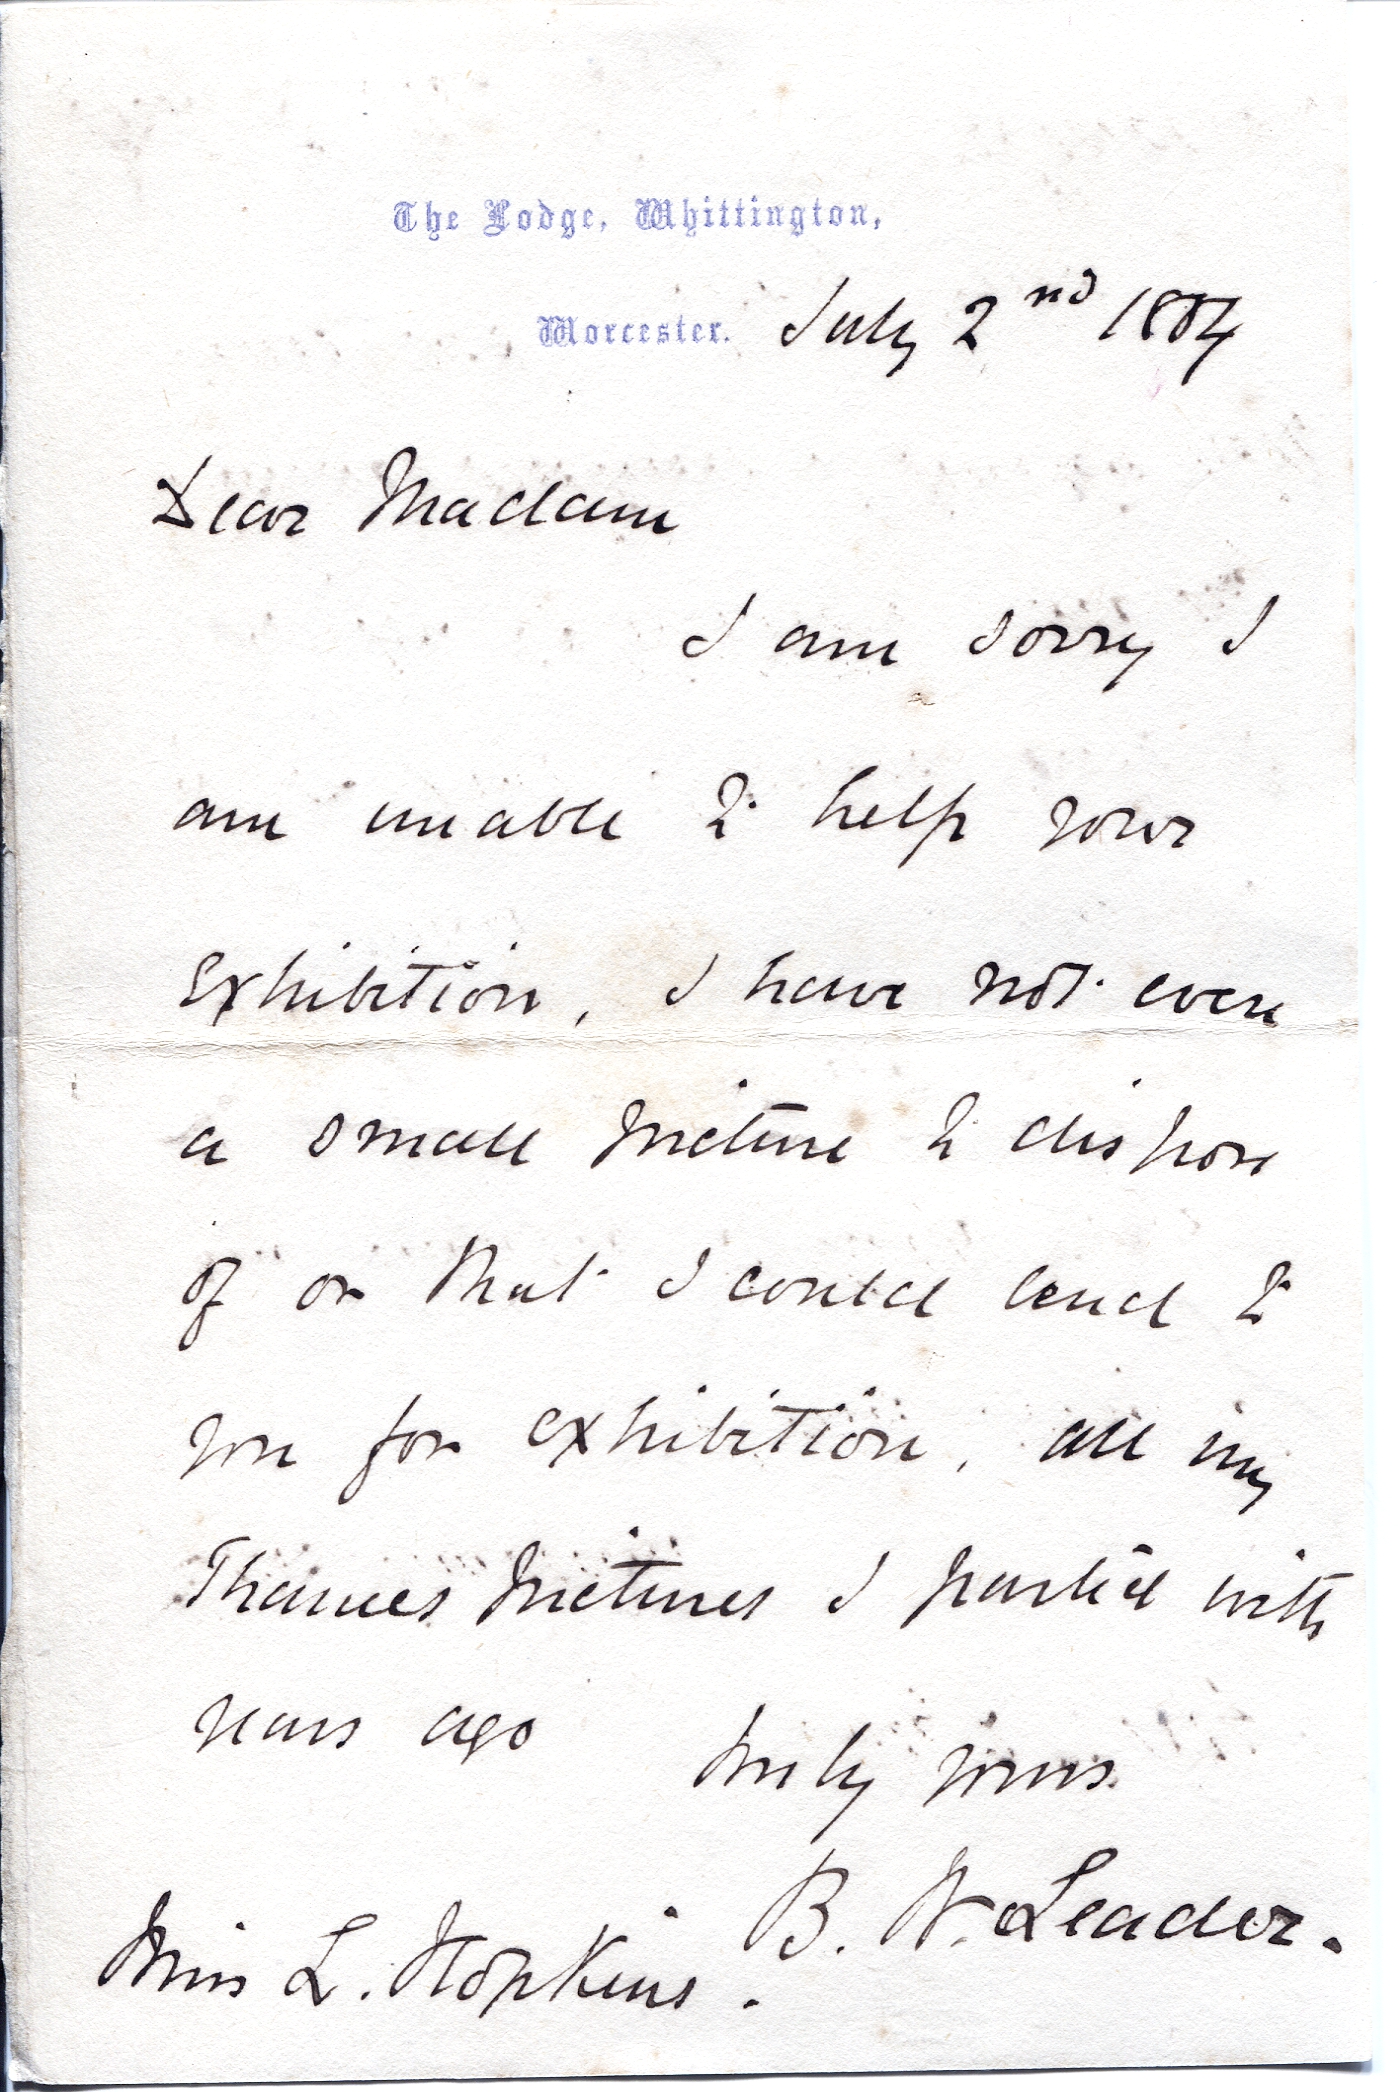 The Lodge, Whittington,
Worcester. July 2nd 1884
Dear Madam
I am sorry I
am unable to help your
Exhibition, I have not even
a small picture to dispose
of or that I could lend to
you for exhibition, all my
Thames pictures I parted with
years ago
truly yours
B. W. Leader.
Miss L. Hopkins.